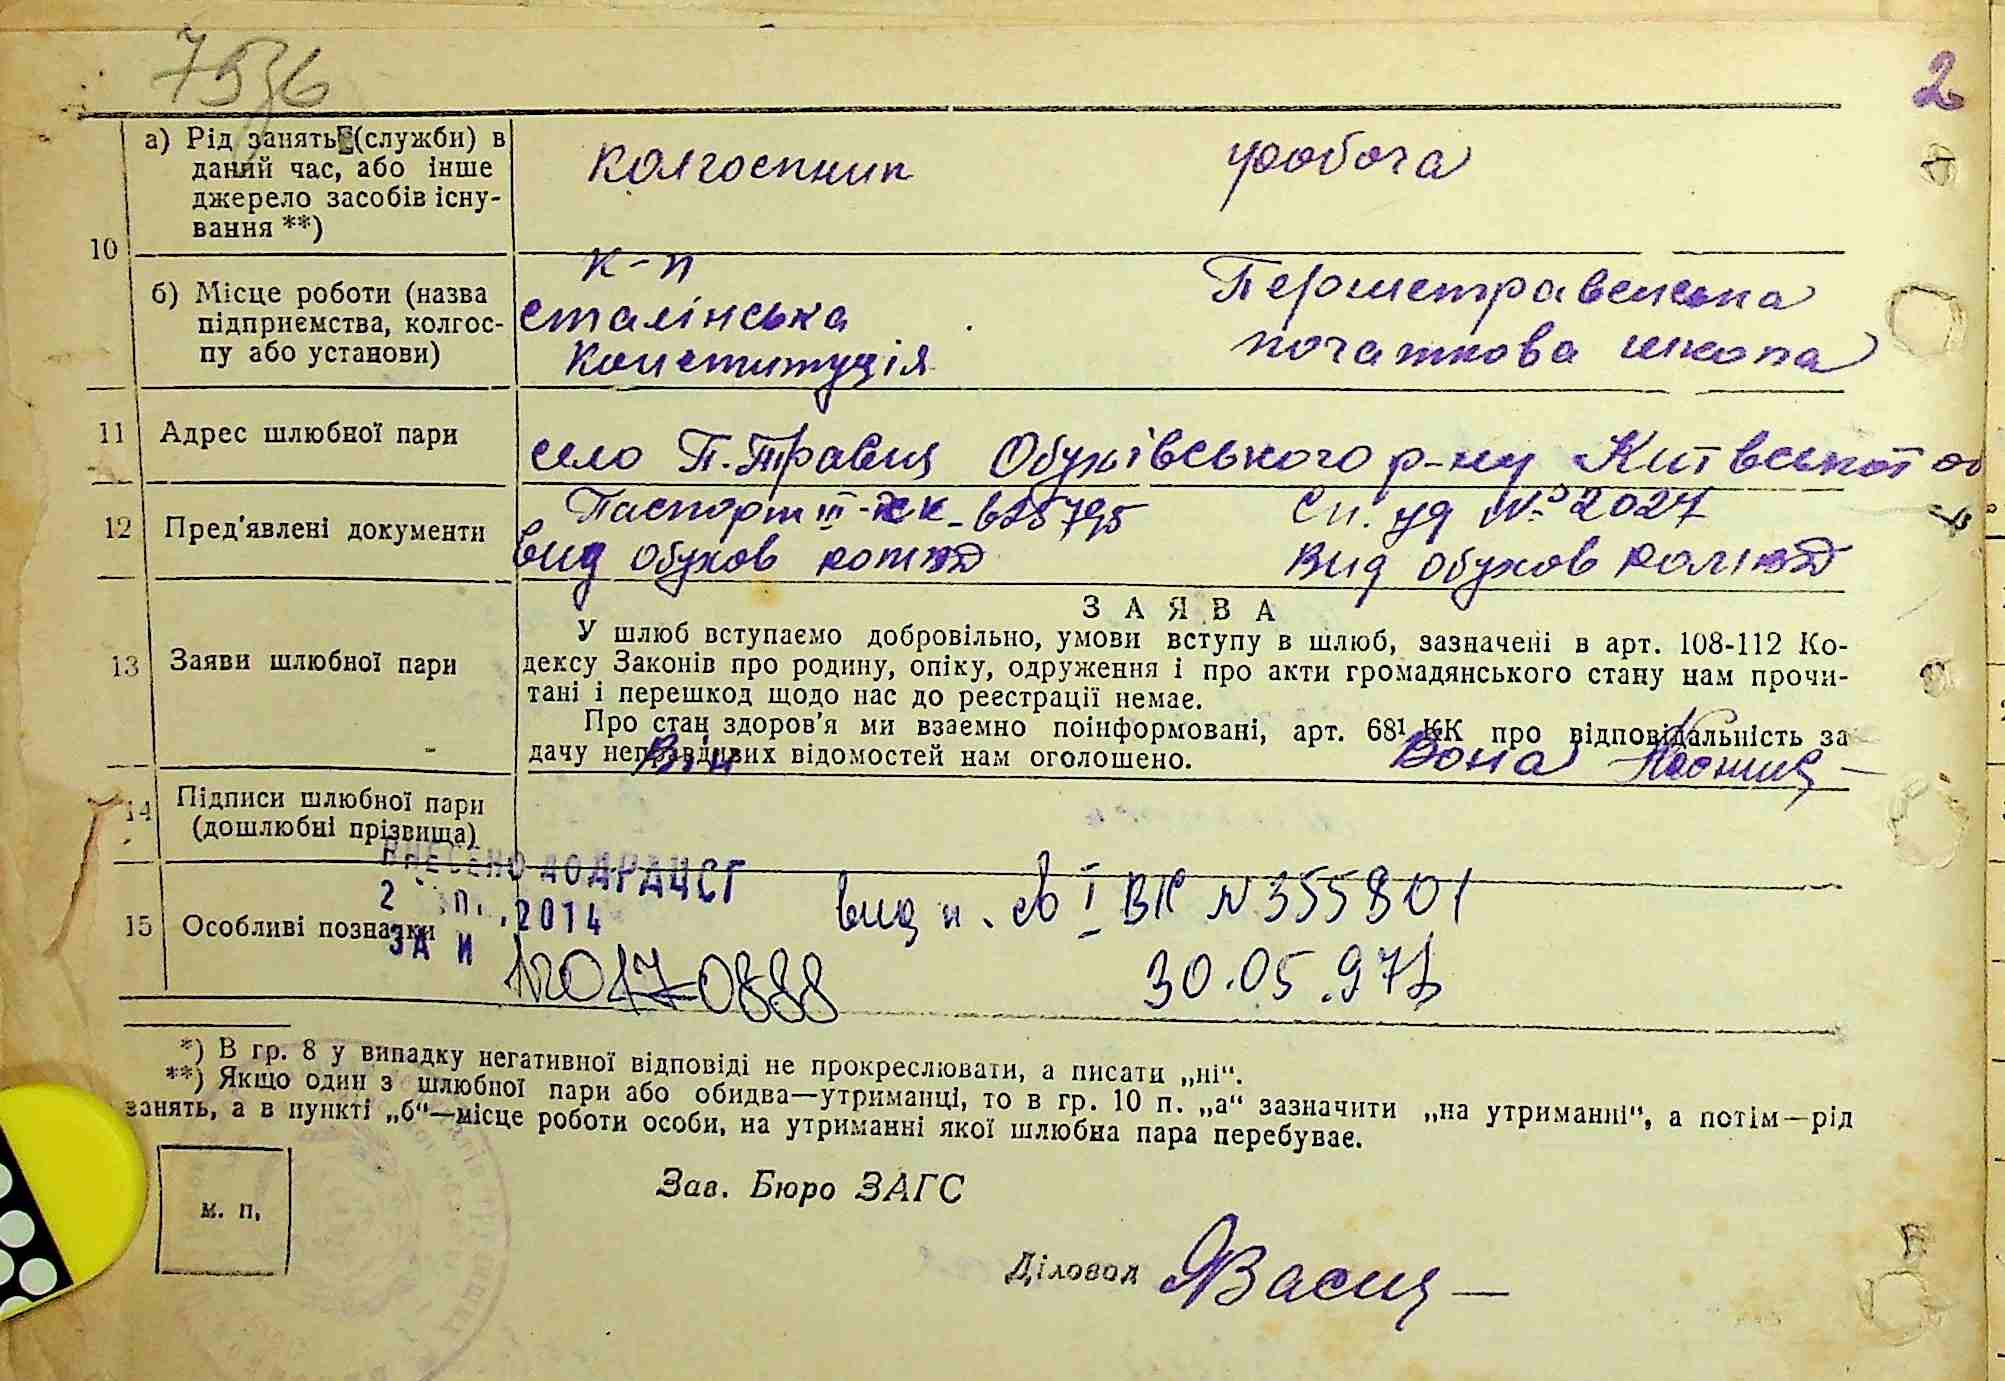 7536
2
10
а) Рід занять (служби) в
даний час, або інше
джерело засобів існу-
вання **)
колгоспник
робоча
б) Місце роботи (назва
підприємства, колгос-
пу або установи)
к-п
сталінська
Конституція
Першетравенська
початкова школа
11 Адрес шлюбної пари
село П.Травня Обухівського р-ну Київської об
12 Пред'явлені документи
Паспорт III-
вид обухов
Сп. уд № 2027
вид обухов
13 Заяви шлюбної пари
ЗАЯВА
У шлюб вступаємо добровільно, умови вступу в шлюб, зазначені в арт. 108-112 Ко-
дексу Законів про родину, опіку, одруження і про акти громадянського стану нам прочи-
тані і перешкод щодо нас до реєстрації немає.
Про стан здоров'я ми взаємно поінформовані, арт. 68¹ КК про відповідальність за
дачу неправдивих відомостей нам оголошено.
Він
Вона
14 Підписи шлюбної пари
(дошлюбні прізвища)
ВНЕСЕНО ДО ДРАЦСГ
2 2014
ЗА №
15 Особливі познатки
вид п. св I ВК N 355801
30.05.97
*) В гр. 8 у випадку негативної відповіді не прокреслювати, а писати „ні“.
**) Якщо один з шлюбної пари або обидва—утриманці, то в гр. 10 п. „а“ зазначити „на утриманні“, а потім—рід
занять, а в пункті „б“—місце роботи особи, на утриманні якої шлюбна пара перебуває.
м. п.
Зав. Бюро ЗАГС
Діловод